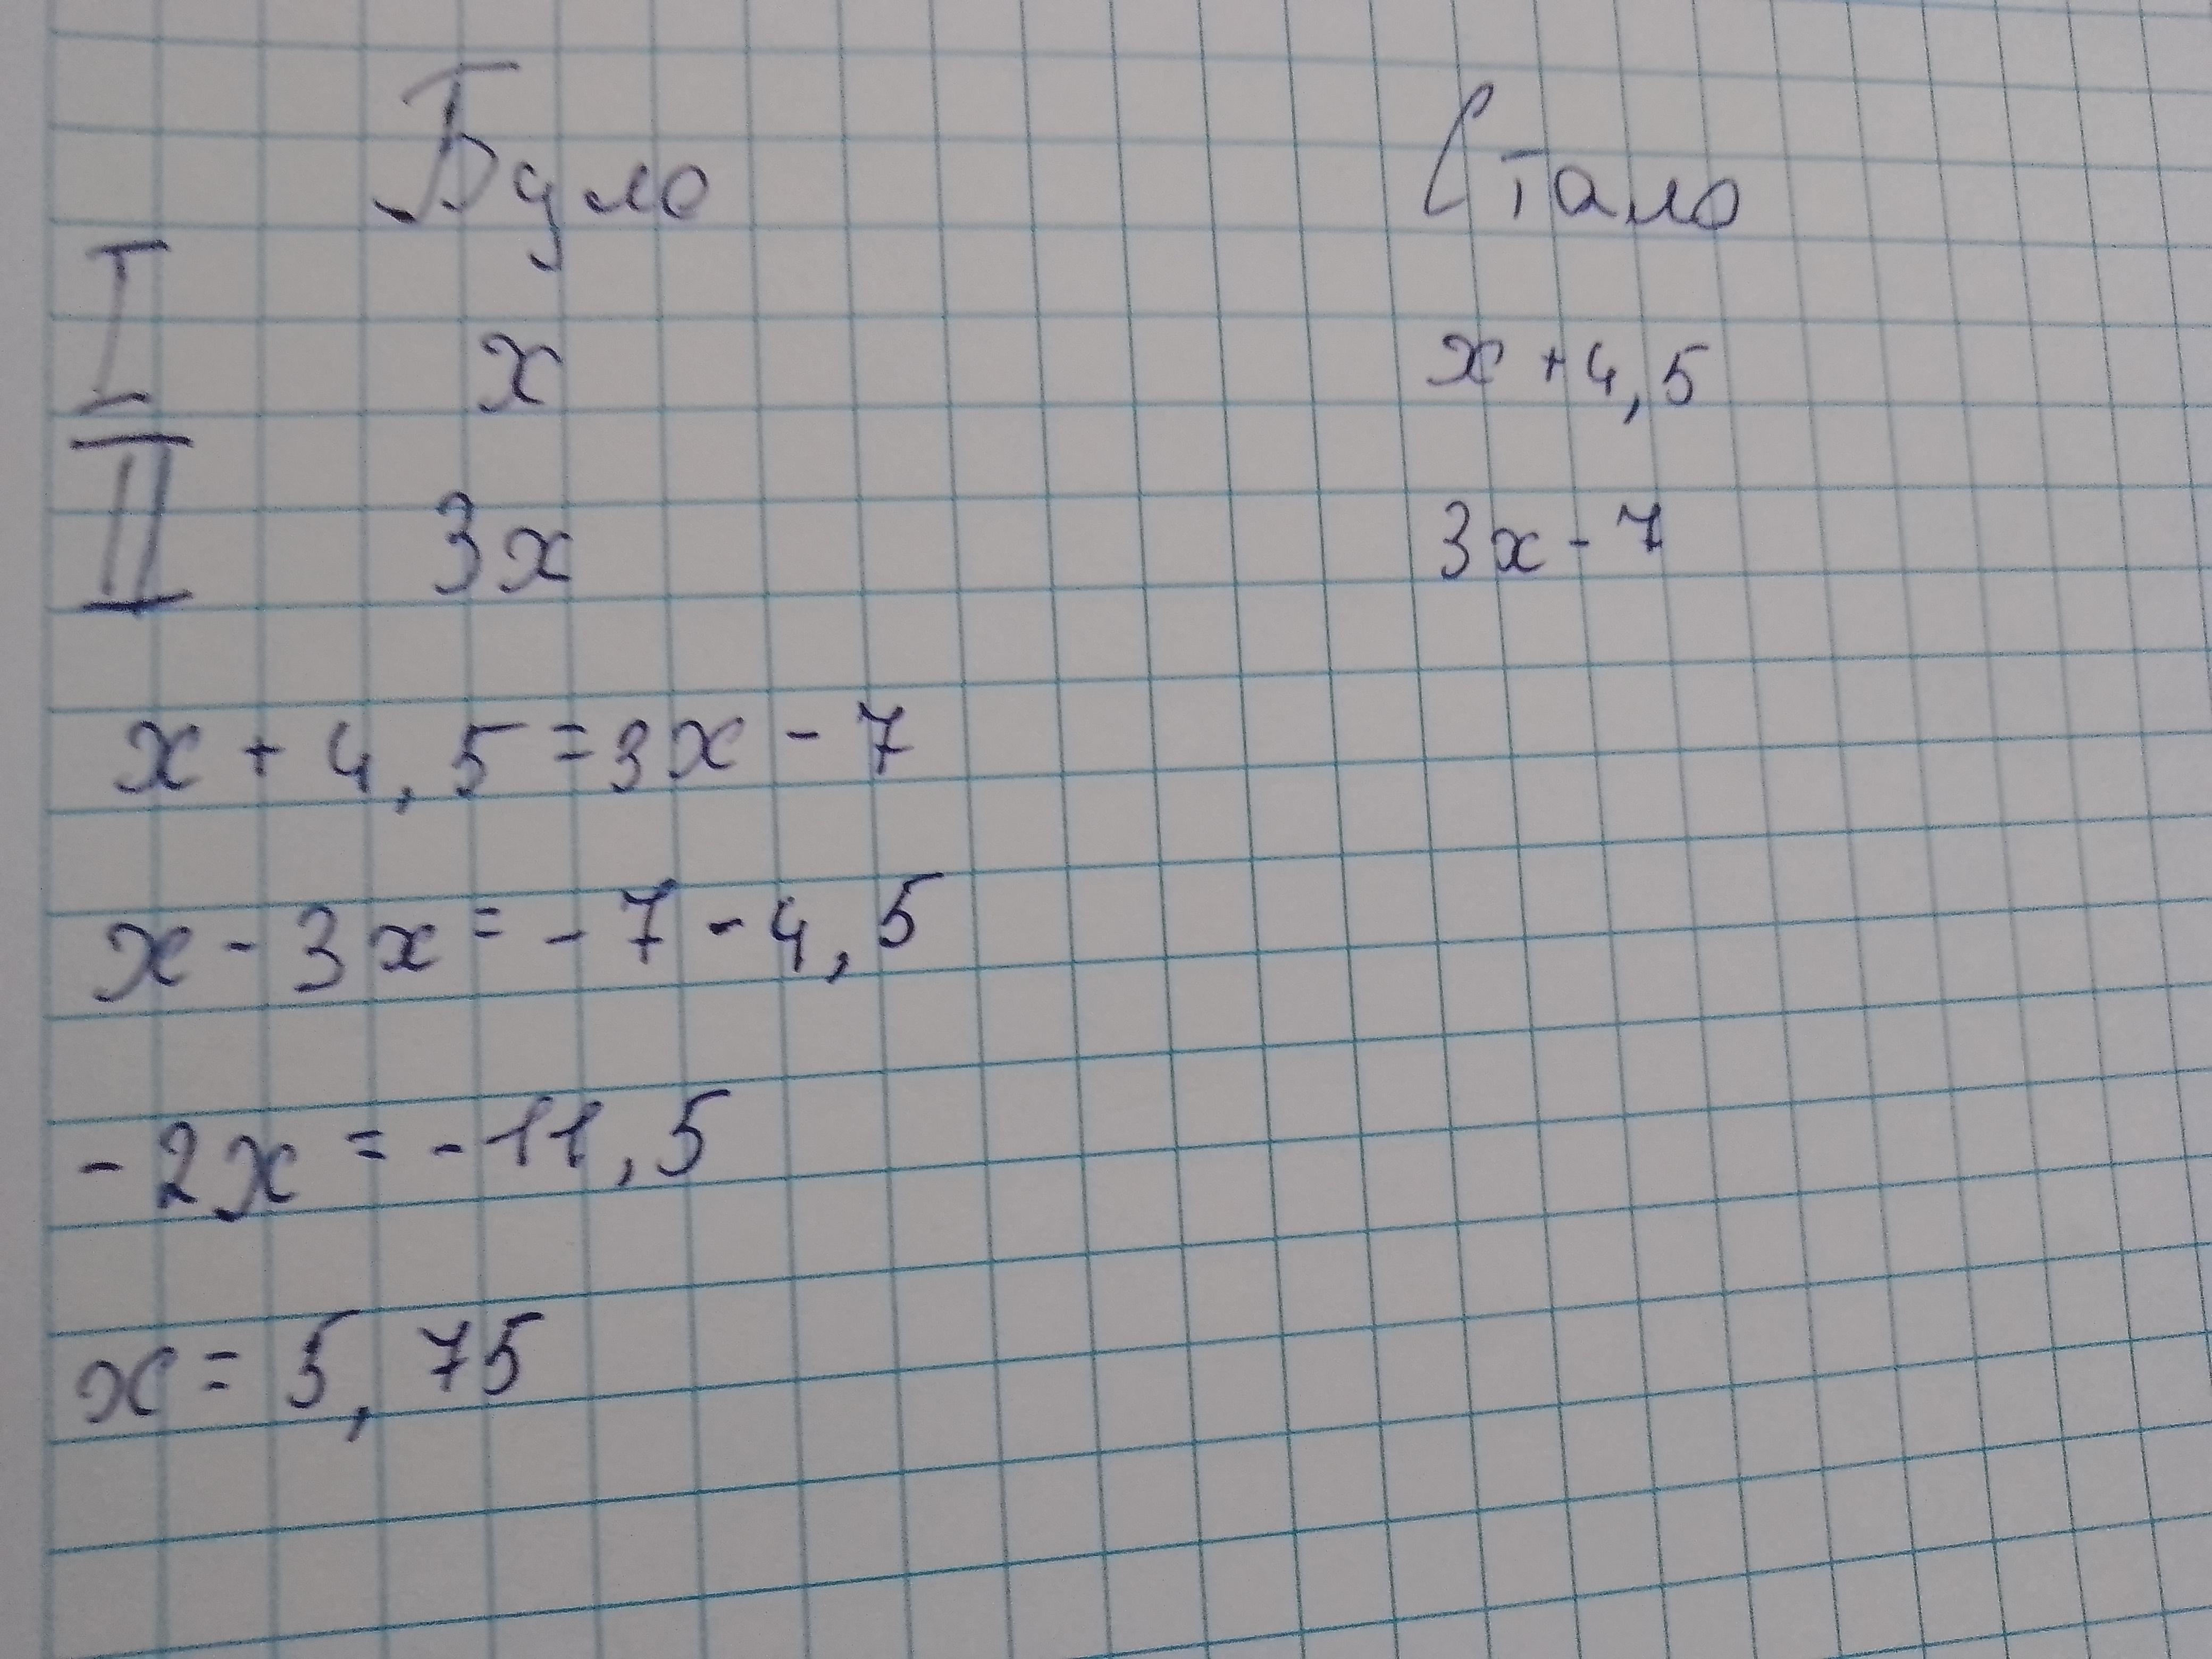 Було Стало
I x x + 4,5
II 3x 3x - 7
x + 4,5 = 3x - 7
x - 3x = - 7 - 4,5
- 2x = - 11,5
x = 5,75